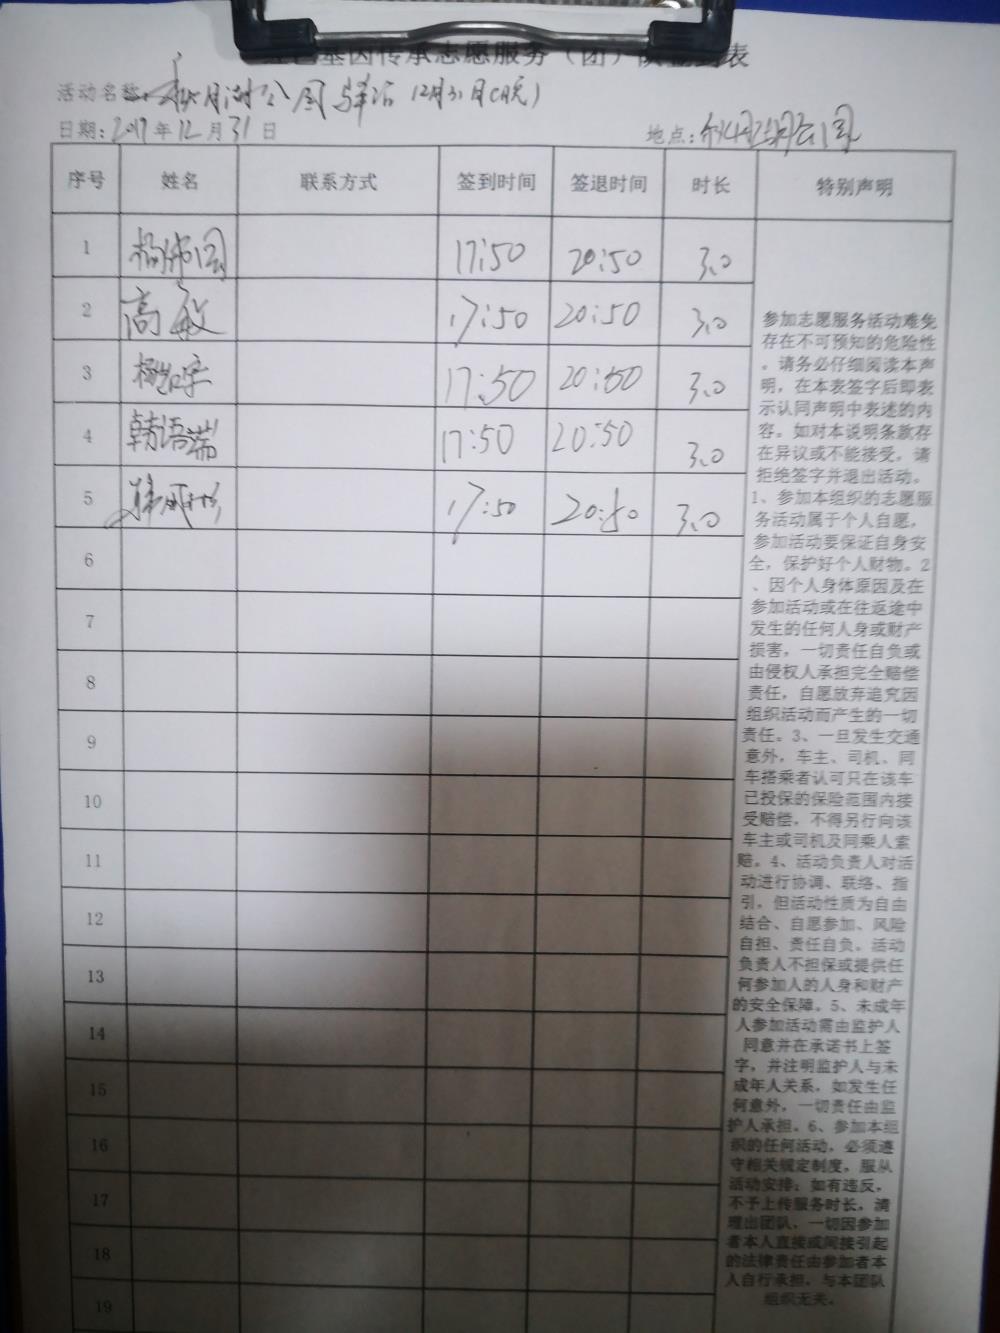 基因传承志愿服务（团）队签到表
活动名称：秋月湖公园驿站12月31日(晚)
日期：2019年12月31日 地点：秋月湖公园
序号 姓名 联系方式 签到时间 签退时间 时长 特别声明
1 17:50 20:50 3.0
2 高敏 17:50 20:50 3.0
3 17:50 20:50 3.0
4 韩语端 17:50 20:50 3.0
5 17:50 20:50 3.0
6
7
8
9
10
11
12
13
14
15
16
17
18
19
参加志愿服务活动难免
存在不可预知的危险性
。请务必仔细阅读本声
明，在本表签字后即表
示认同声明中表述的内
容。如对本说明条款存
在异议或不能接受，请
拒绝签字并退出活动。
1、参加本组织的志愿服
务活动属于个人自愿，
参加活动要保证自身安
全，保护好个人财物。2
、因个人身体原因及在
参加活动或在往返途中
发生的任何人身或财产
损害，一切责任自负或
由侵权人承担完全赔偿
责任，自愿放弃追究因
组织活动而产生的一切
责任。3、一旦发生交通
意外，车主、司机、同
车搭乘者认可只在该车
已投保的保险范围内接
受赔偿，不得另行向该
车主或司机及同乘人索
赔。4、活动负责人对活
动进行协调、联络、指
引，但活动性质为自由
结合、自愿参加、风险
自担、责任自负。活动
负责人不担保或提供任
何参加人的人身和财产
的安全保障。5、未成年
人参加活动需由监护人
同意并在承诺书上签
字，并注明监护人与未
成年人关系，如发生任
何意外，一切责任由监
护人承担。6、参加本组
织的任何活动，必须遵
守相关规定制度，服从
活动安排；如有违反，
不予上传服务时长，清
理出团队，一切因参加
者本人直接或间接引起
的法律责任由参加者本
人自行承担，与本团队
组织无关。